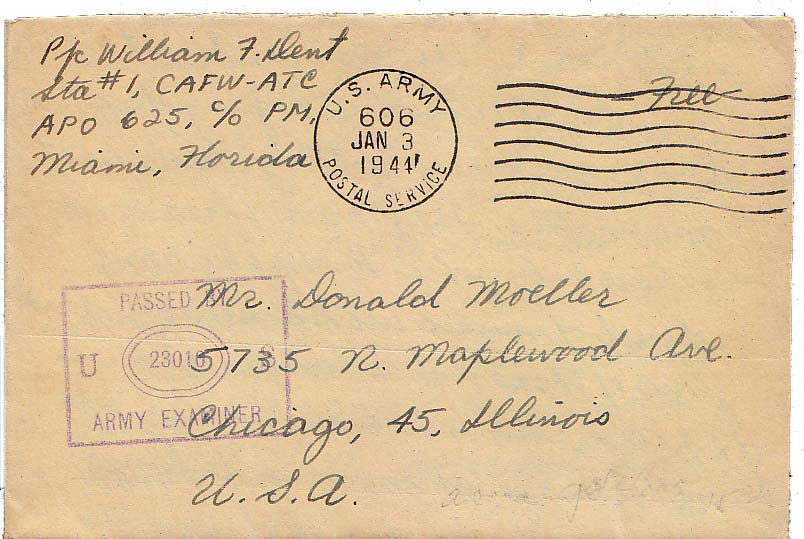 Pfc William F. Dent
Sta #1, CAFW-ATC
APO 625, c/o PM,
Miami, Florida
U.S. ARMY
606
JAN 3
1944
POSTAL SERVICE
Free
PASSED BY
U 23010 S
ARMY EXAMINER
Mr. Donald Moeller
5735 N. Maplewood Ave.
Chicago, 45, Illinois
U. S. A.